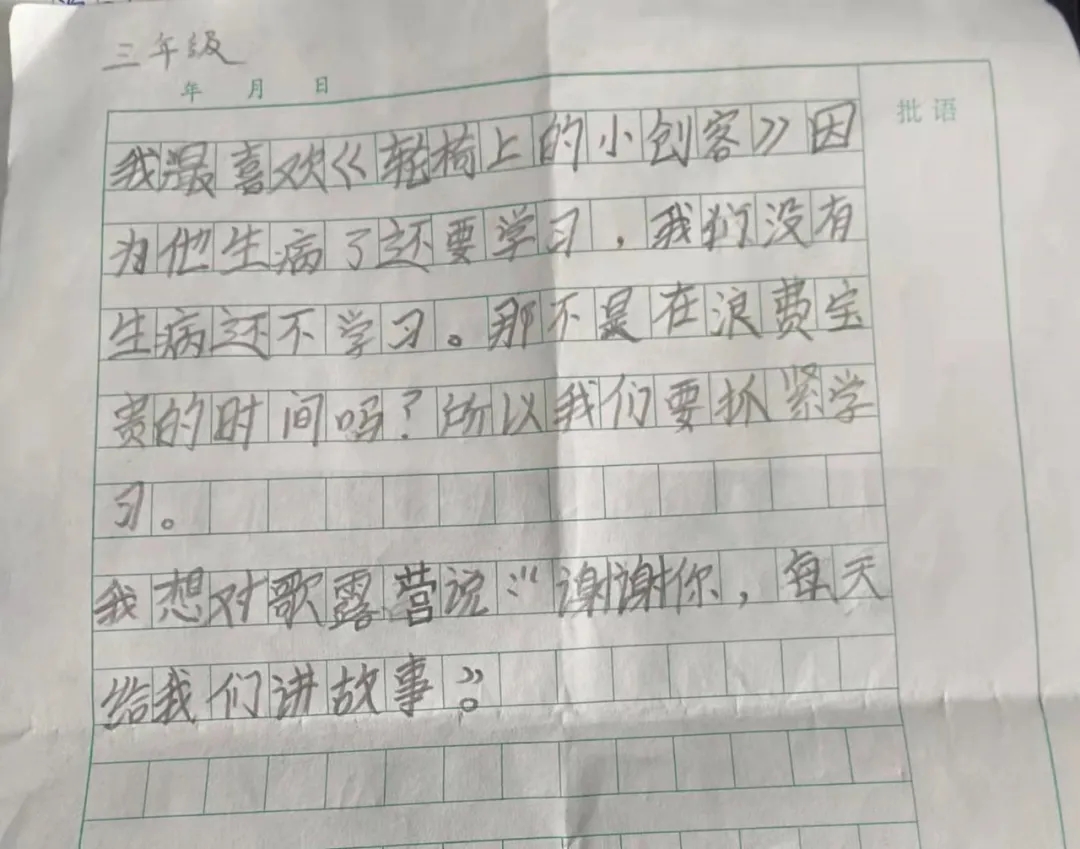 三年级
年 月 日
批语
我最喜欢《轮椅上的小创客》因
为他生病了还要学习，我们没有
生病还不学习。那不是在浪费宝
贵的时间吗？所以我们要抓紧学
习。
我想对歌露营说：“谢谢你，每天
给我们讲故事。”